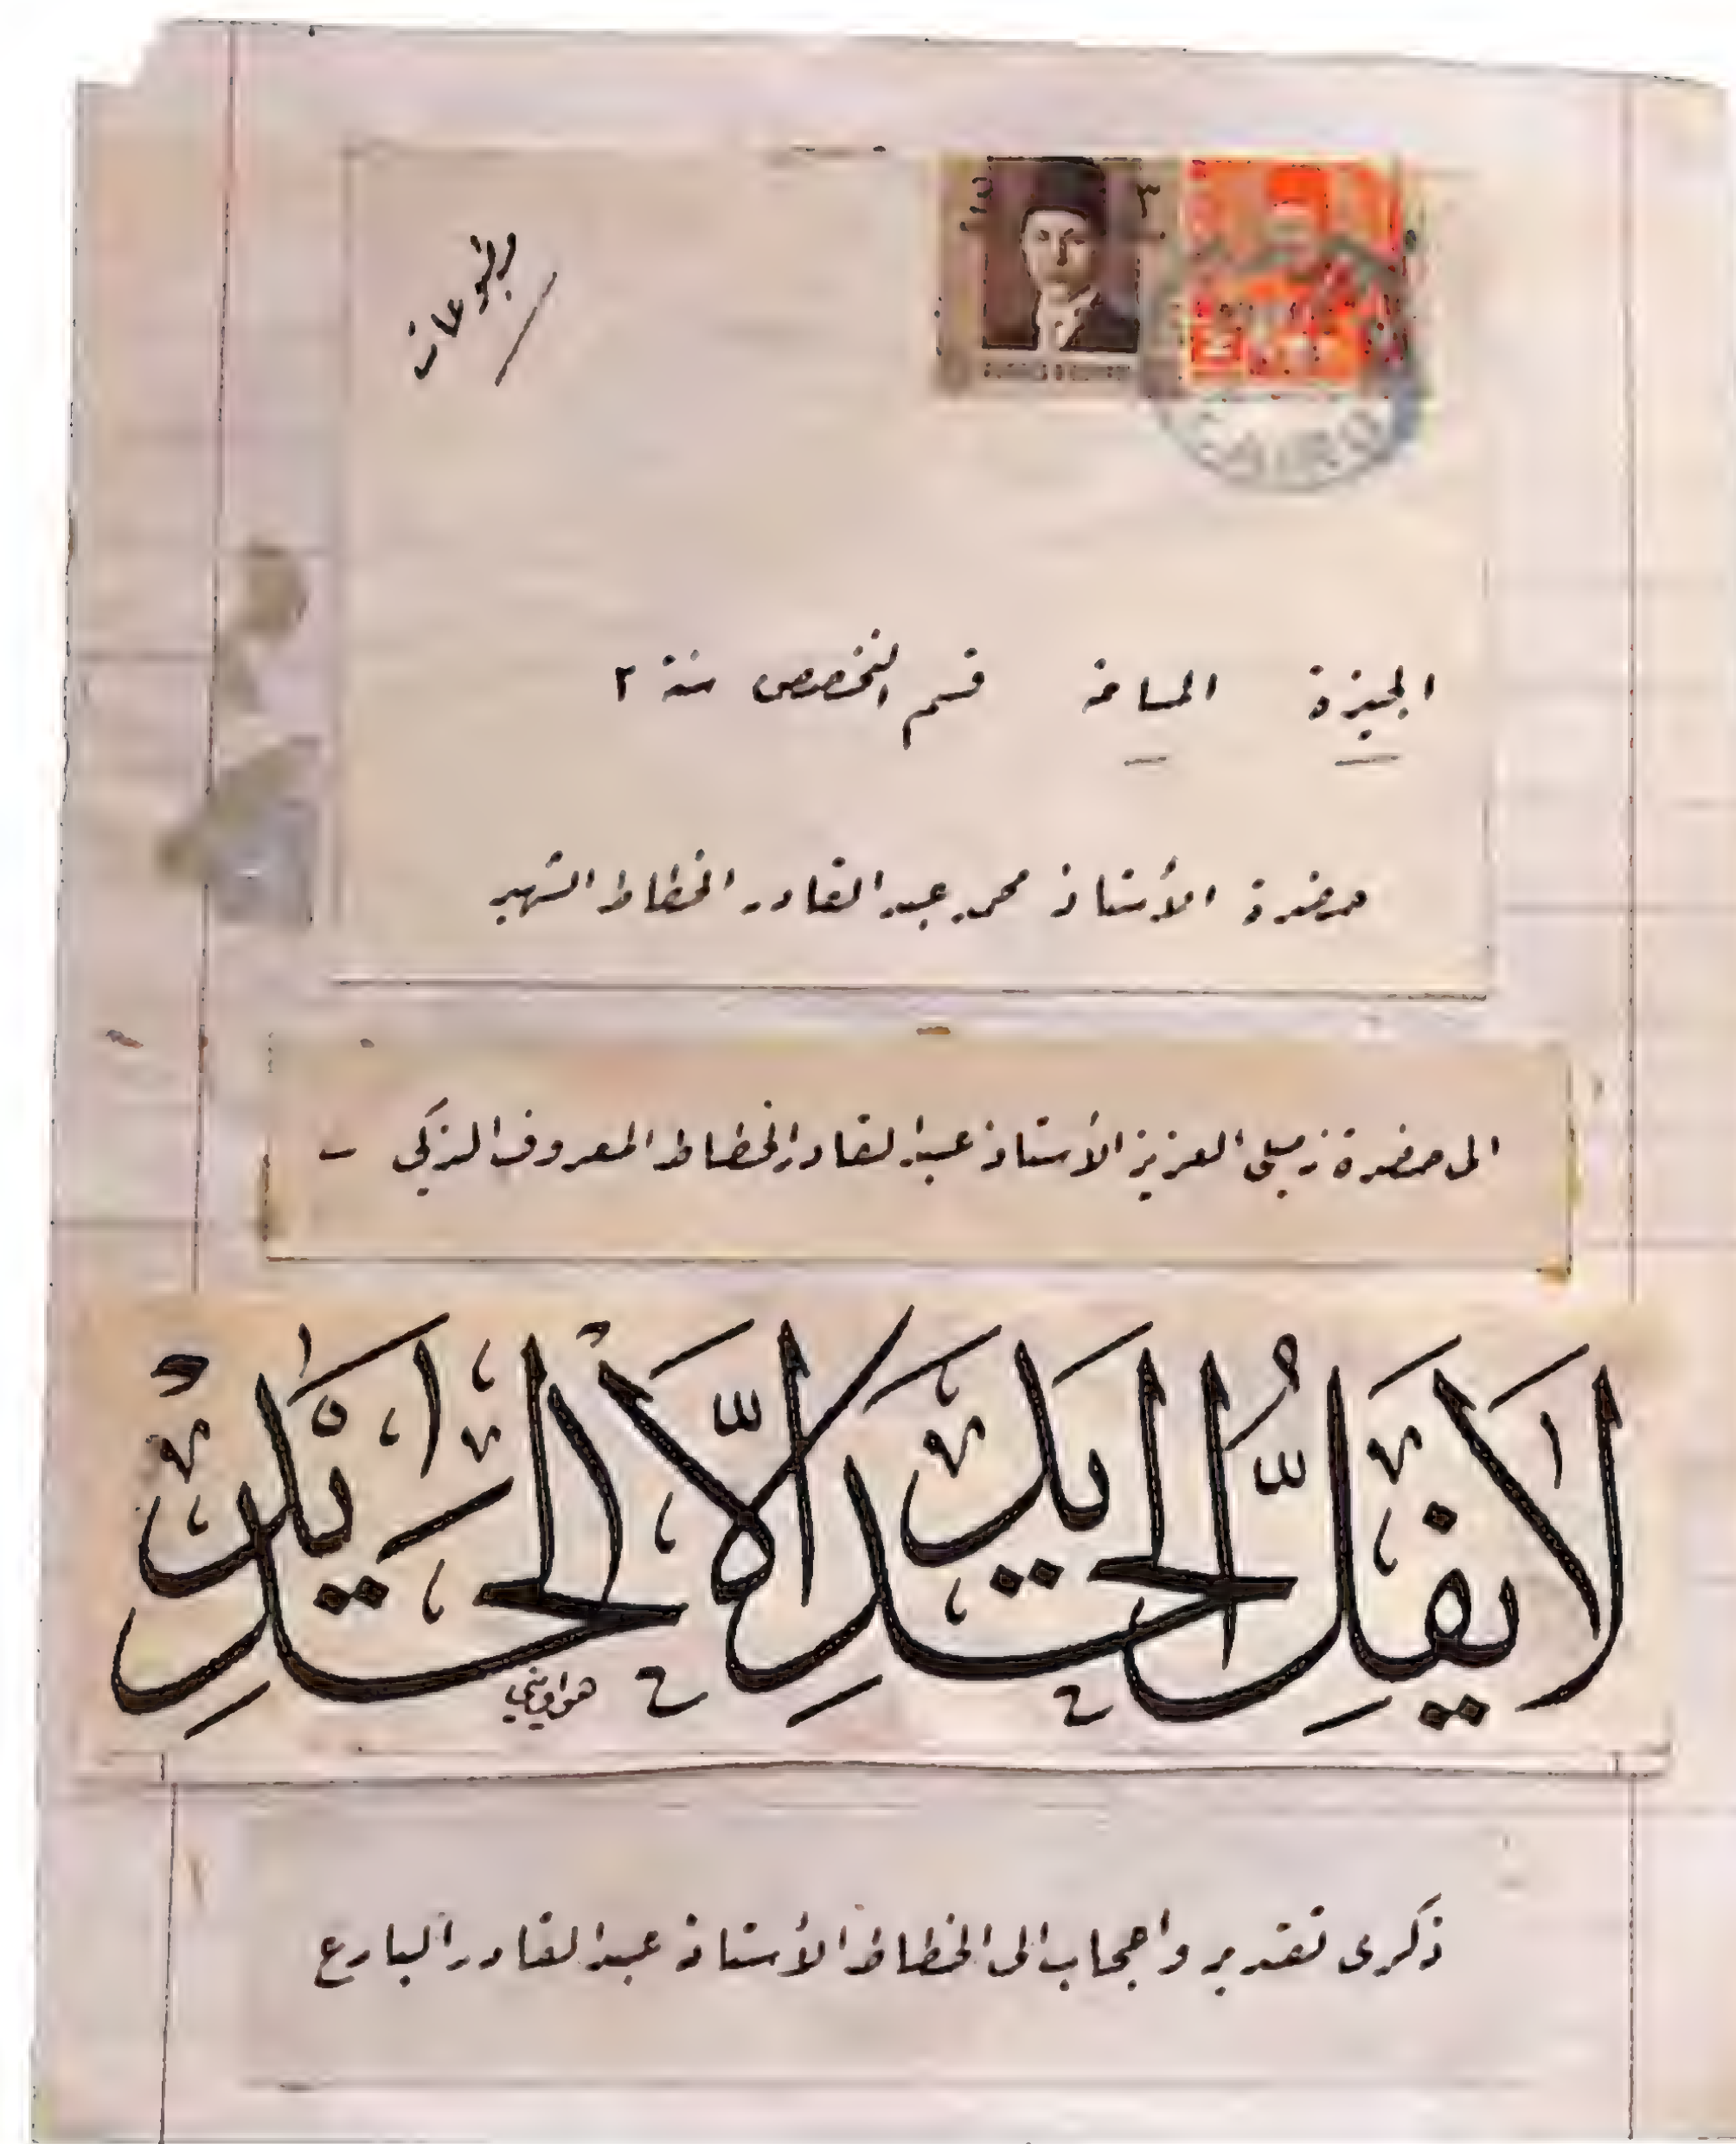 ٣
CAIRO
مطبوعات
الجيزة المساحة قسم التخصص سنة ٢
حضرة الأستاذ محمد عبد القادر الخطاط الشهير
الى حضرة زميلى العزيز الأستاذ عبد القادر الخطاط المعروف الذكى
لَا يَفِلُّ الْحَدِيدَ إِلَّا الْحَدِيدُ
هواوينى
ذكرى تقدير وإعجاب الى الخطاط الأستاذ عبد القادر البارع